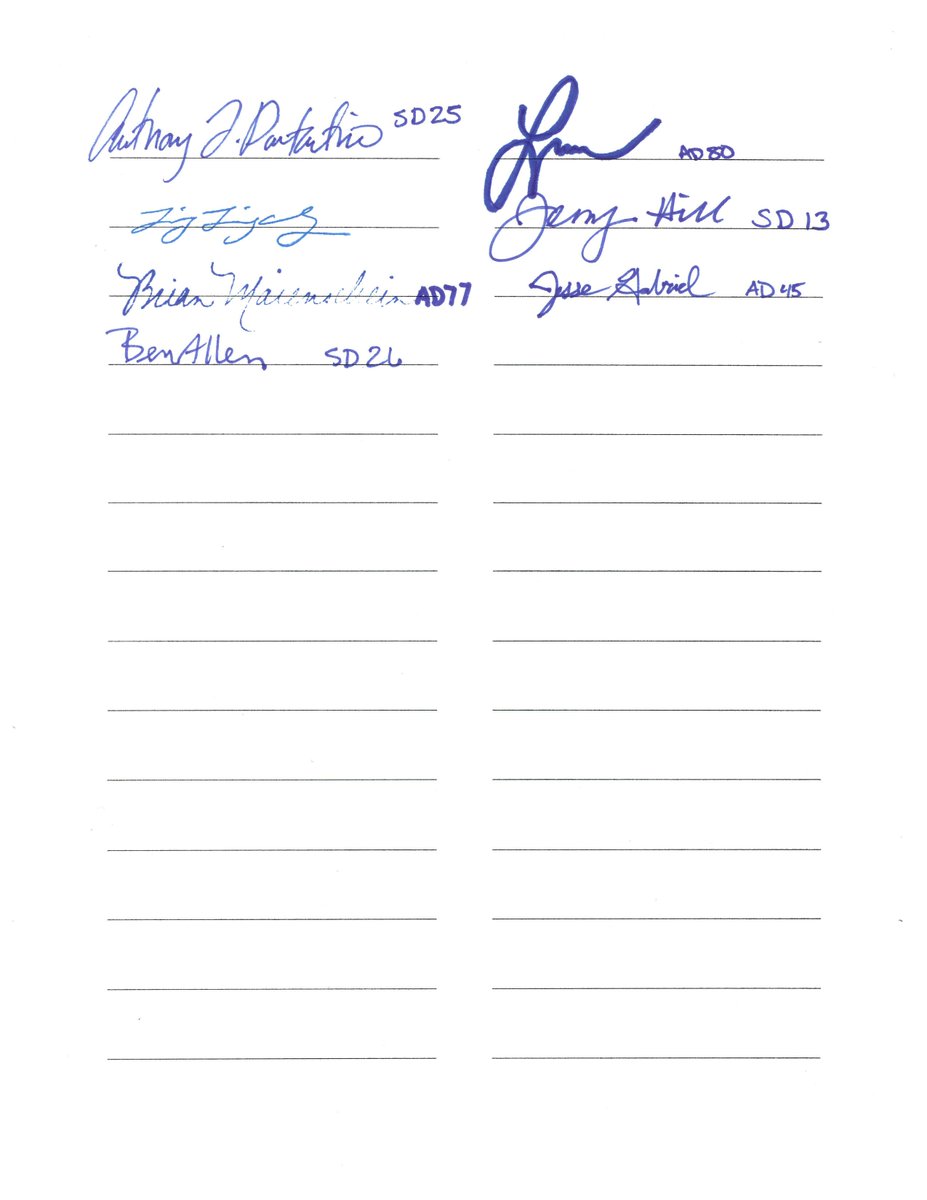 Anthony J. Portantino SD25
AD80
Jerry Hill SD13
Brian Maienschein AD77
Jesse Gabriel AD45
Ben Allen SD26